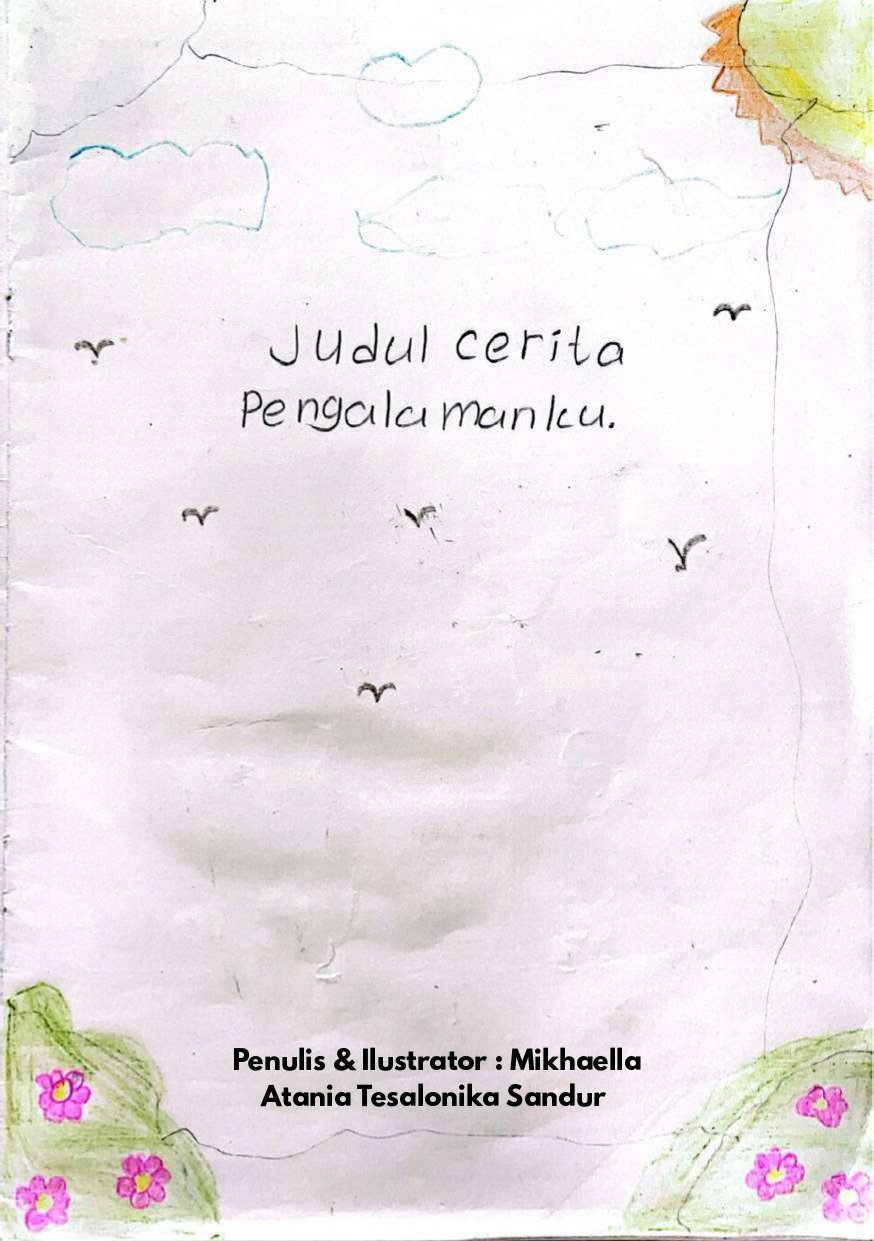 Judul cerita
Pengalamanku.
Penulis & Ilustrator : Mikhaella
Atania Tesalonika Sandur